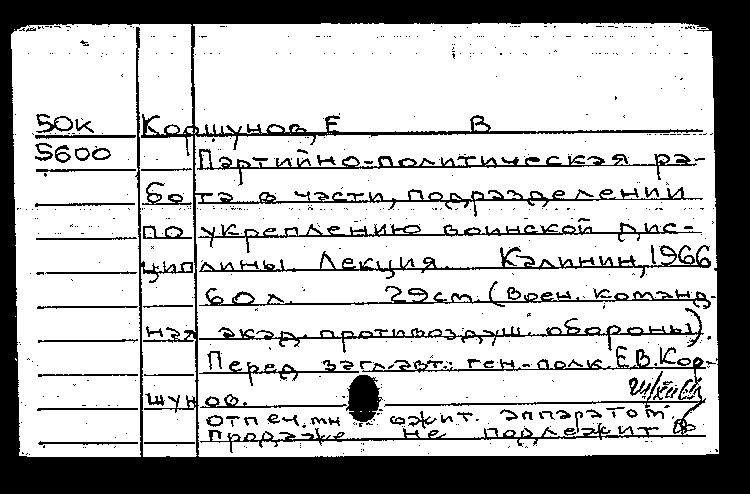 50к Коршунов, Е В
5600 Партийно-политическая ра-
бота в части, подразделении
по укреплению воинской дис-
циплины. Лекция. Калинин, 1966.
60 л. 29 см. (Воен. команд-
ная акад. противовоздуш. обороны).
Перед загл. авт.: ген.-полк. Е.В. Кор-
шунов.
отпеч. мн ожит. аппаратом.
продаже не подлежит